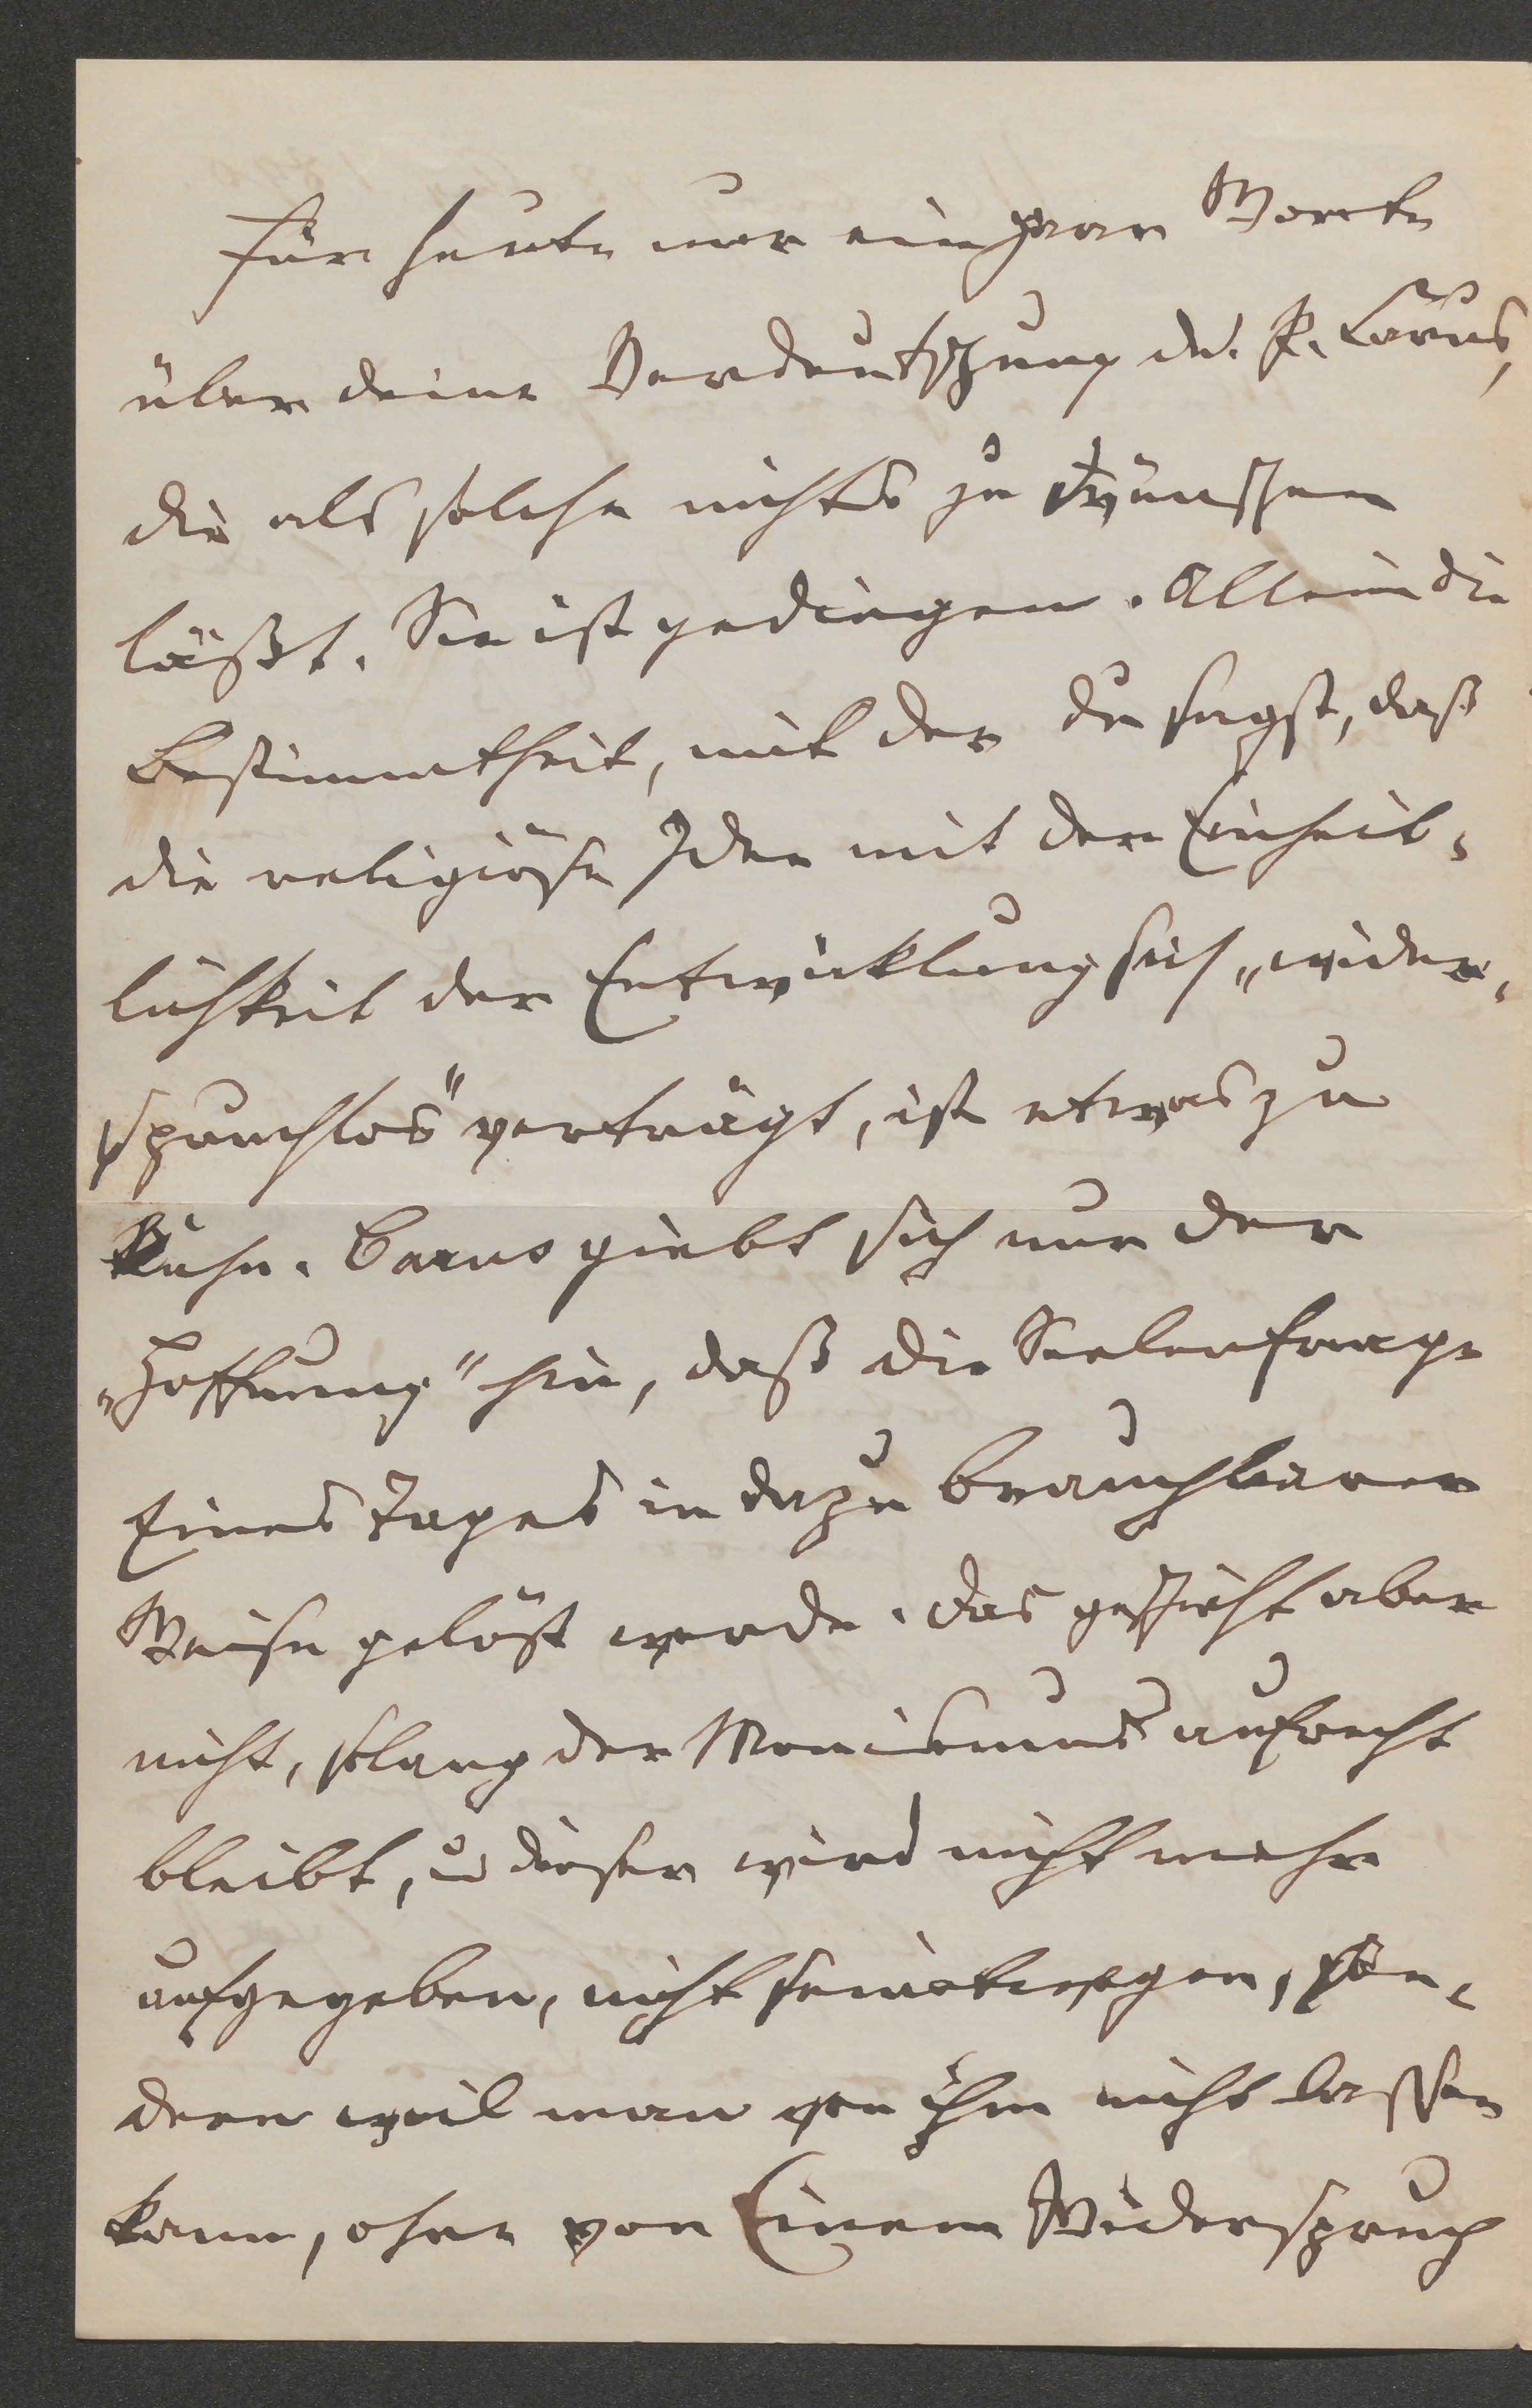 Für heute nur ein paar Worte
über deine Verdeutschung des P. Carus,
die als solche nichts zu wünschen
läßt. Sie ist gediegen. Allein die
Bestimmtheit, mit der du sagst, daß
die religiöse Idee mit der Einheit-
lichkeit der Entwicklung sich „wider-
spruchlos" verträgt, ist etwas zu
kühn. Carus giebt sich nur der
„Hoffnung" hin, daß die Seelenfrage
Eines Tages in dazu brauchbarer
Weise gelöst werde. Das geschieht aber
nicht, solang der Monismus aufrecht
bleibt, u dieser wird nicht mehr
aufgegeben, nicht seinetwegen, son-
dern weil man von ihm nicht lassen
kann, ohne von Einem Widerspruch